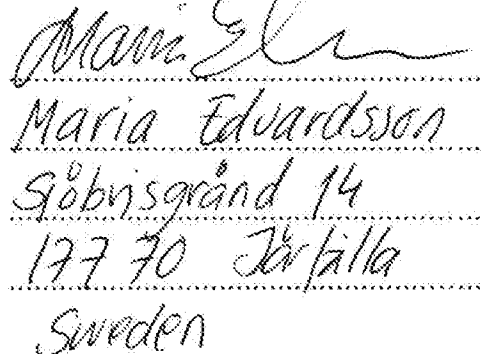 Maria E
Maria Edvardsson
Sjöbrisgränd 14
177 70 Järfälla
Sweden